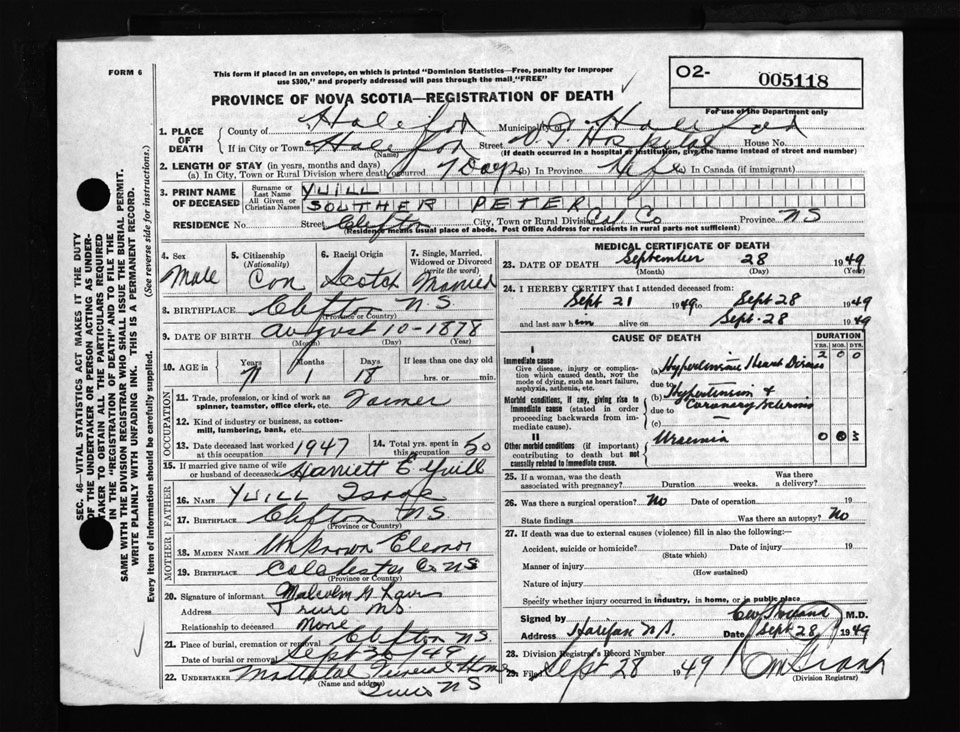 FORM 6
This form if placed in an envelope, on which is printed "Dominion Statistics—Free, penalty for improper
use $300," and properly addressed will pass through the mail "FREE"
O2- 005118
For use of the Department only
PROVINCE OF NOVA SCOTIA—REGISTRATION OF DEATH
1. PLACE OF DEATH
County of Halifax Municipality of Halifax
If in City or Town Halifax (Name) Street V G Hospital House No.
(If death occurred in a hospital or institution, give the name instead of street and number)
2. LENGTH OF STAY (in years, months and days)
(a) In City, Town or Rural Division where death occurred 7 Days (b) In Province Life (c) In Canada (if immigrant)
3. PRINT NAME OF DECEASED
Surname or Last Name YUILL
All Given or Christian Names SOUTHER PETER
RESIDENCE No. Street Clifton City, Town or Rural Division Col Co Province NS
(Residence means usual place of abode. Post Office Address for residents in rural parts not sufficient)
4. Sex Male
5. Citizenship (Nationality) Can
6. Racial Origin Scotch
7. Single, Married, Widowed or Divorced (write the word) Married
8. BIRTHPLACE Clifton N.S.
(Province or Country)
9. DATE OF BIRTH August 10-1878
(Month) (Day) (Year)
10. AGE in Years 71 Months 1 Days 18 If less than one day old
hrs. or min.
OCCUPATION
11. Trade, profession, or kind of work as
spinner, teamster, office clerk, etc. Farmer
12. Kind of industry or business, as cotton-
mill, lumbering, bank, etc.
13. Date deceased last worked at this occupation 1947
14. Total yrs. spent in this occupation 50
15. If married give name of wife
or husband of deceased Harriett E Yuill
FATHER
16. NAME YUILL Isaac
17. BIRTHPLACE Clifton N.S.
(Province or Country)
MOTHER
18. MAIDEN NAME Unknown Elenor
19. BIRTHPLACE Colchester Co NS
(Province or Country)
20. Signature of informant Malcolm
Address Truro NS.
Relationship to deceased None
21. Place of burial, cremation or removal Clifton N.S.
Date of burial or removal Sept 30/49
22. UNDERTAKER Mattatal Funeral Home
(Name and address) Truro NS
MEDICAL CERTIFICATE OF DEATH
23. DATE OF DEATH September 28 1949
(Month) (Day) (Year)
24. I HEREBY CERTIFY that I attended deceased from:
Sept 21 1949 to Sept 28 1949
and last saw him alive on Sept. 28 1949
CAUSE OF DEATH
DURATION
YRS. MOS. DYS.
2 0 0
I
Immediate cause
Give disease, injury or complication which caused death, NOT the mode of dying, such as heart failure, asphyxia, asthenia, etc.
(a) Hypertensive Heart Disease
due to
Morbid conditions, if any, giving rise to immediate cause (stated in order proceeding backwards from immediate cause).
(b) Hypertension &
Coronary Sclerosis
due to
(c)
II
Other morbid conditions (if important) contributing to death but not causally related to immediate cause.
Uraemia 0 0 3
25. If a woman, was the death
associated with pregnancy? Duration weeks. Was there a delivery?
26. Was there a surgical operation? No Date of operation 19
State findings Was there an autopsy? No
27. If death was due to external causes (violence) fill in also the following:
Accident, suicide or homicide? Date of injury 19
(State which)
Manner of injury
(How sustained)
Nature of injury
Specify whether injury occurred in industry, in home, or in public place
Signed by M.D.
Address Halifax N.S. Date Sept 28 1949
28. Division Registrar's Record Number
29. Filed Sept 28 1949
(Division Registrar)
SEC. 46—VITAL STATISTICS ACT MAKES IT THE DUTY
OF THE UNDERTAKER OR PERSON ACTING AS UNDER-
TAKER TO OBTAIN ALL THE PARTICULARS REQUIRED
IN THE "REGISTRATION OF DEATH" AND TO FILE THE
SAME WITH THE DIVISION REGISTRAR WHO SHALL ISSUE THE BURIAL PERMIT.
WRITE PLAINLY WITH UNFADING INK. THIS IS A PERMANENT RECORD.
Every item of information should be carefully supplied. (See reverse side for instructions.)